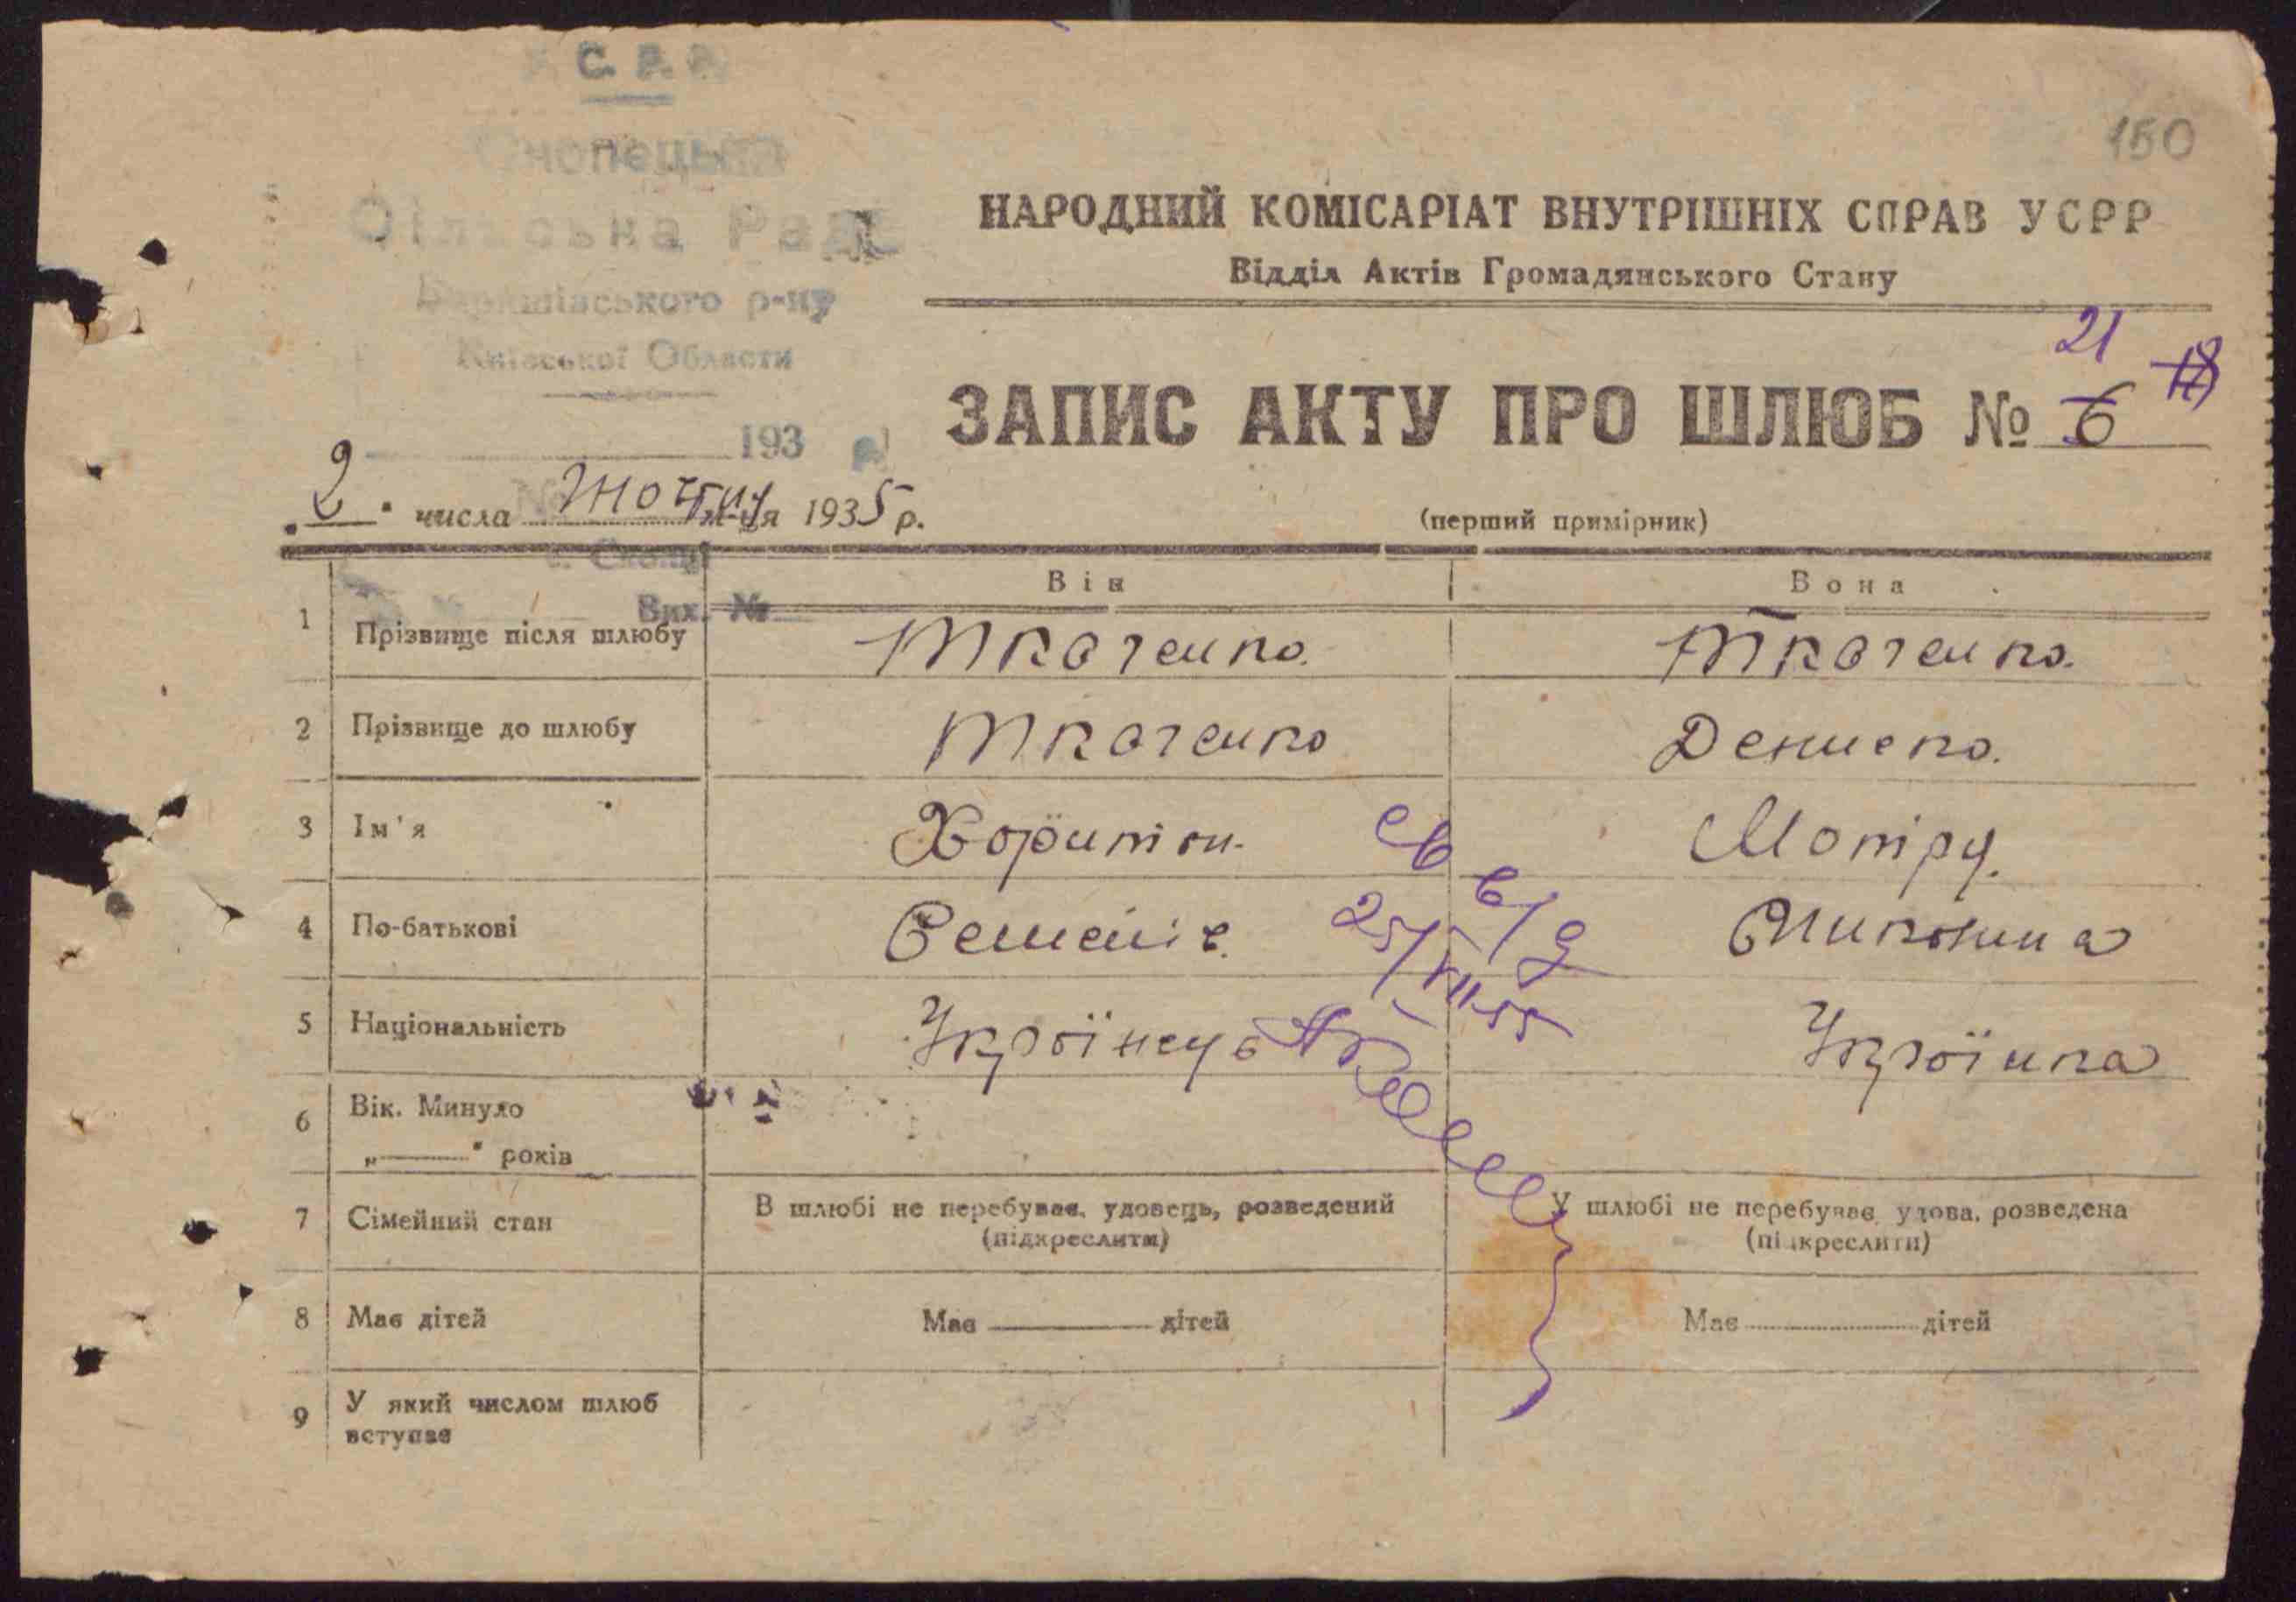 С. Р. Р.
150
Снопецька
Сільська Рада
Баришівського р-ну
Київської Области
193
НАРОДНИЙ КОМІСАРІАТ ВНУТРІШНІХ СПРАВ УСРР
Відділ Актів Громадянського Стану
21 18
ЗАПИС АКТУ ПРО ШЛЮБ № 6
„2" числа жотня м-ця 1935 р.
(перший примірник)
с. Снопці
Вих. №
Він Вона
1 Прізвище після шлюбу Ткаченко. Ткаченко.
2 Прізвище до шлюбу Ткаченко Дениско.
3 Ім'я Харитон. Мотіру.
4 По-батькові Семеніч. Миконина
5 Національність Українець Українка
св в/д
25/VII-55
6 Вік. Минуло
„——" років
7 Сімейний стан В шлюбі не перебуває, удовець, розведений У шлюбі не перебуває, удова, розведена
(підкреслити) (підкреслити)
8 Має дітей Має —— дітей Має —— дітей
9 У який числом шлюб
вступає